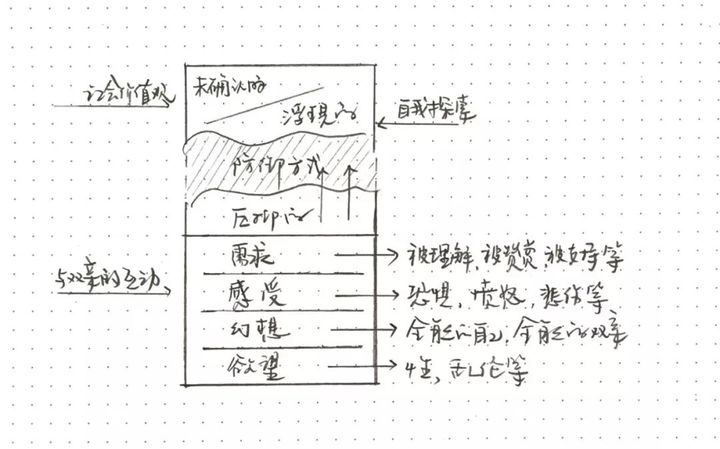 社会价值观
未确认的
浮现的
自我探索
防御方式
压抑的
与双亲的互动
需求
被理解、被赞赏、被支持等
感受
恐惧、愤怒、悲伤等
幻想
全能的自己、全能的双亲
欲望
性、乱伦等